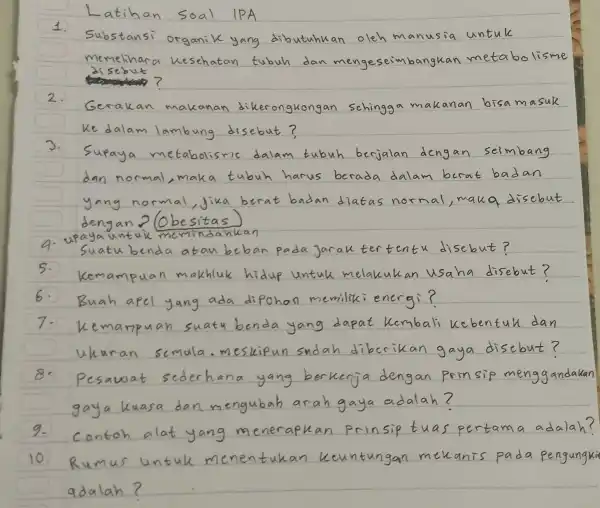 Latihan Soal IPA
1. Substansi organik yang dibutuhkan oleh manusia untuk
memelihara kesehatan tubuh dan mengeseimbangkan metabolisme
disebut
?
2. Gerakan makanan dikerongkongan sehingga makanan bisa masuk
ke dalam lambung disebut ?
3. Supaya metabolisme dalam tubuh berjalan dengan seimbang
dan normal, maka tubuh harus berada dalam berat badan
yang normal, jika berat badan diatas normal, maka disebut
dengan ? (Obesitas)
4. upaya untuk memindahkan
suatu benda atau beban pada jarak tertentu disebut ?
5. Kemampuan makhluk hidup untuk melakukan usaha disebut ?
6. Buah apel yang ada dipohon memiliki energi ?
7. Kemampuan suatu benda yang dapat kembali kebentuk dan
ukuran semula. meskipun sudah diberikan gaya disebut ?
8. Pesawat sederhana yang berkerja dengan Prinsip menggandakan
gaya kuasa dan mengubah arah gaya adalah ?
9. Contoh alat yang menerapkan Prinsip tuas pertama adalah ?
10. Rumus untuk menentukan keuntungan mekanis pada Pengungki
adalah ?